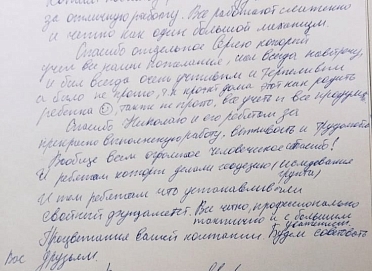 за отличную работу. Все работают слаженно
и четко как один большой механизм.
Спасибо отдельное Сергею который
учел все наши пожелания, шел всегда навстречу,
и был всегда очень учтивым и терпеливым
а было не просто, т.к. проект дома этот как родить
ребенка 😊, также не просто, все учесть и все продумать.
Спасибо Николаю и его ребятам за
прекрасно выполненную работу. вежливость и трудолюбие
Вообще всем огромное человеческое спасибо!
И ребятам которые делали геодезию (исследования
грунта)
И тем ребятам что устанавливали
свайный фундамент. Все четко, профессионально
тактично и с большим
уважением.
Процветания вашей компании. Будем советовать
Вас друзьям.